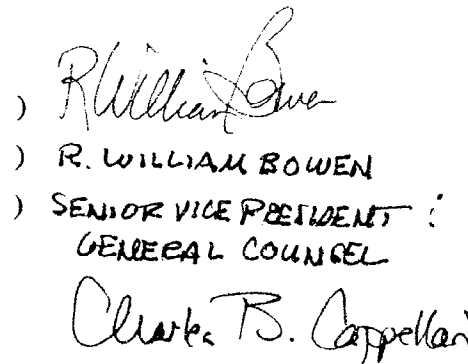 ) R William Bowen
) R. WILLIAM BOWEN
) SENIOR VICE PRESIDENT :
GENERAL COUNSEL
Charles B. Cappellari